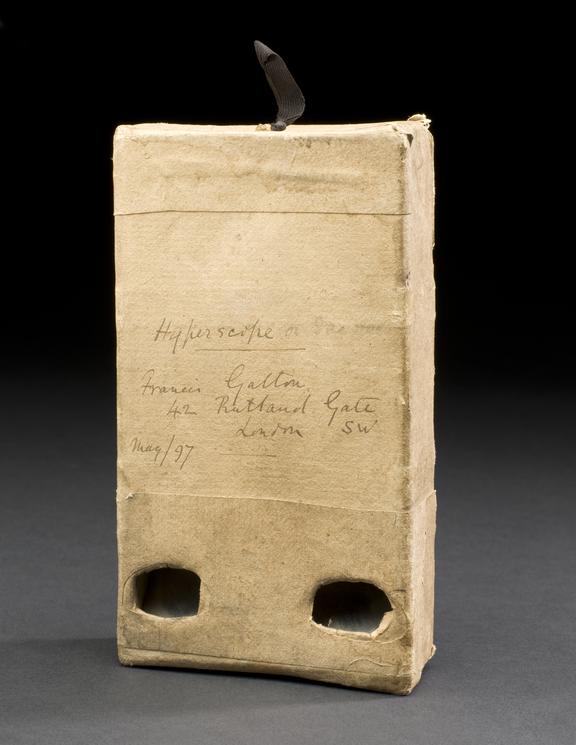 Hyperscope or
Francis Galton
42 Rutland Gate
London SW
May/97